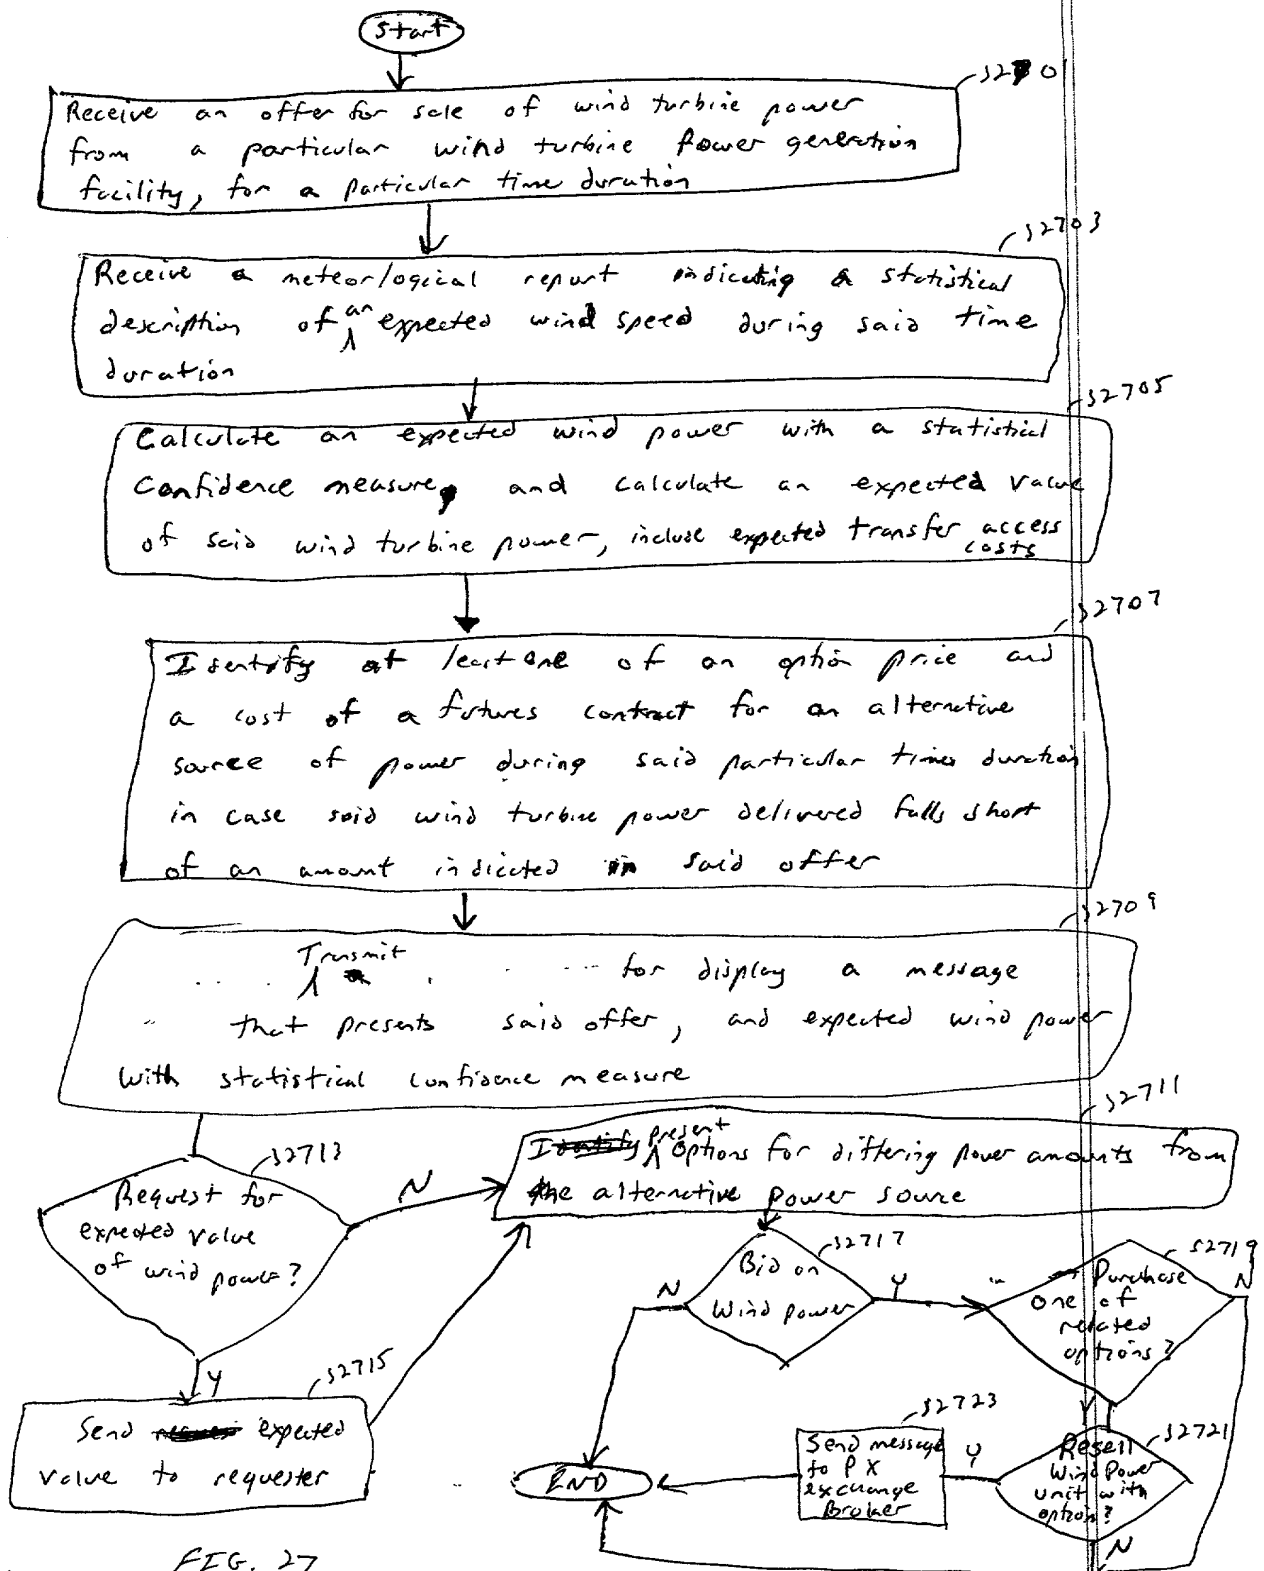 Start
S2701
Receive an offer for sale of wind turbine power
from a particular wind turbine power generation
facility, for a particular time duration
S2703
Receive a meteorlogical report indicating a statistical
description of an expected wind speed during said time
duration
S2705
Calculate an expected wind power with a statistical
Confidence measure, and calculate an expected value
of said wind turbine power, include expected transfer access
costs
S2707
Identify at least one of an option price and
a cost of a futures contract for an alternative
source of power during said particular time duration
in case said wind turbine power delivered falls short
of an amount indicated in said offer
S2709
Transmit for display a message
that presents said offer, and expected wind power
with statistical confidence measure
S2711
present options for differing power amounts from
the alternative power source
S2713
Request for
expected value
of wind power?
N
Y
S2715
Send expected
value to requester
S2717
Bid on
Wind power
N
Y
S2719
Purchase
one of
related
options?
N
Y
S2721
Resell
Wind Power
unit with
option?
Y
N
S2723
Send message
to PX
exchange
Broker
END
FIG. 27